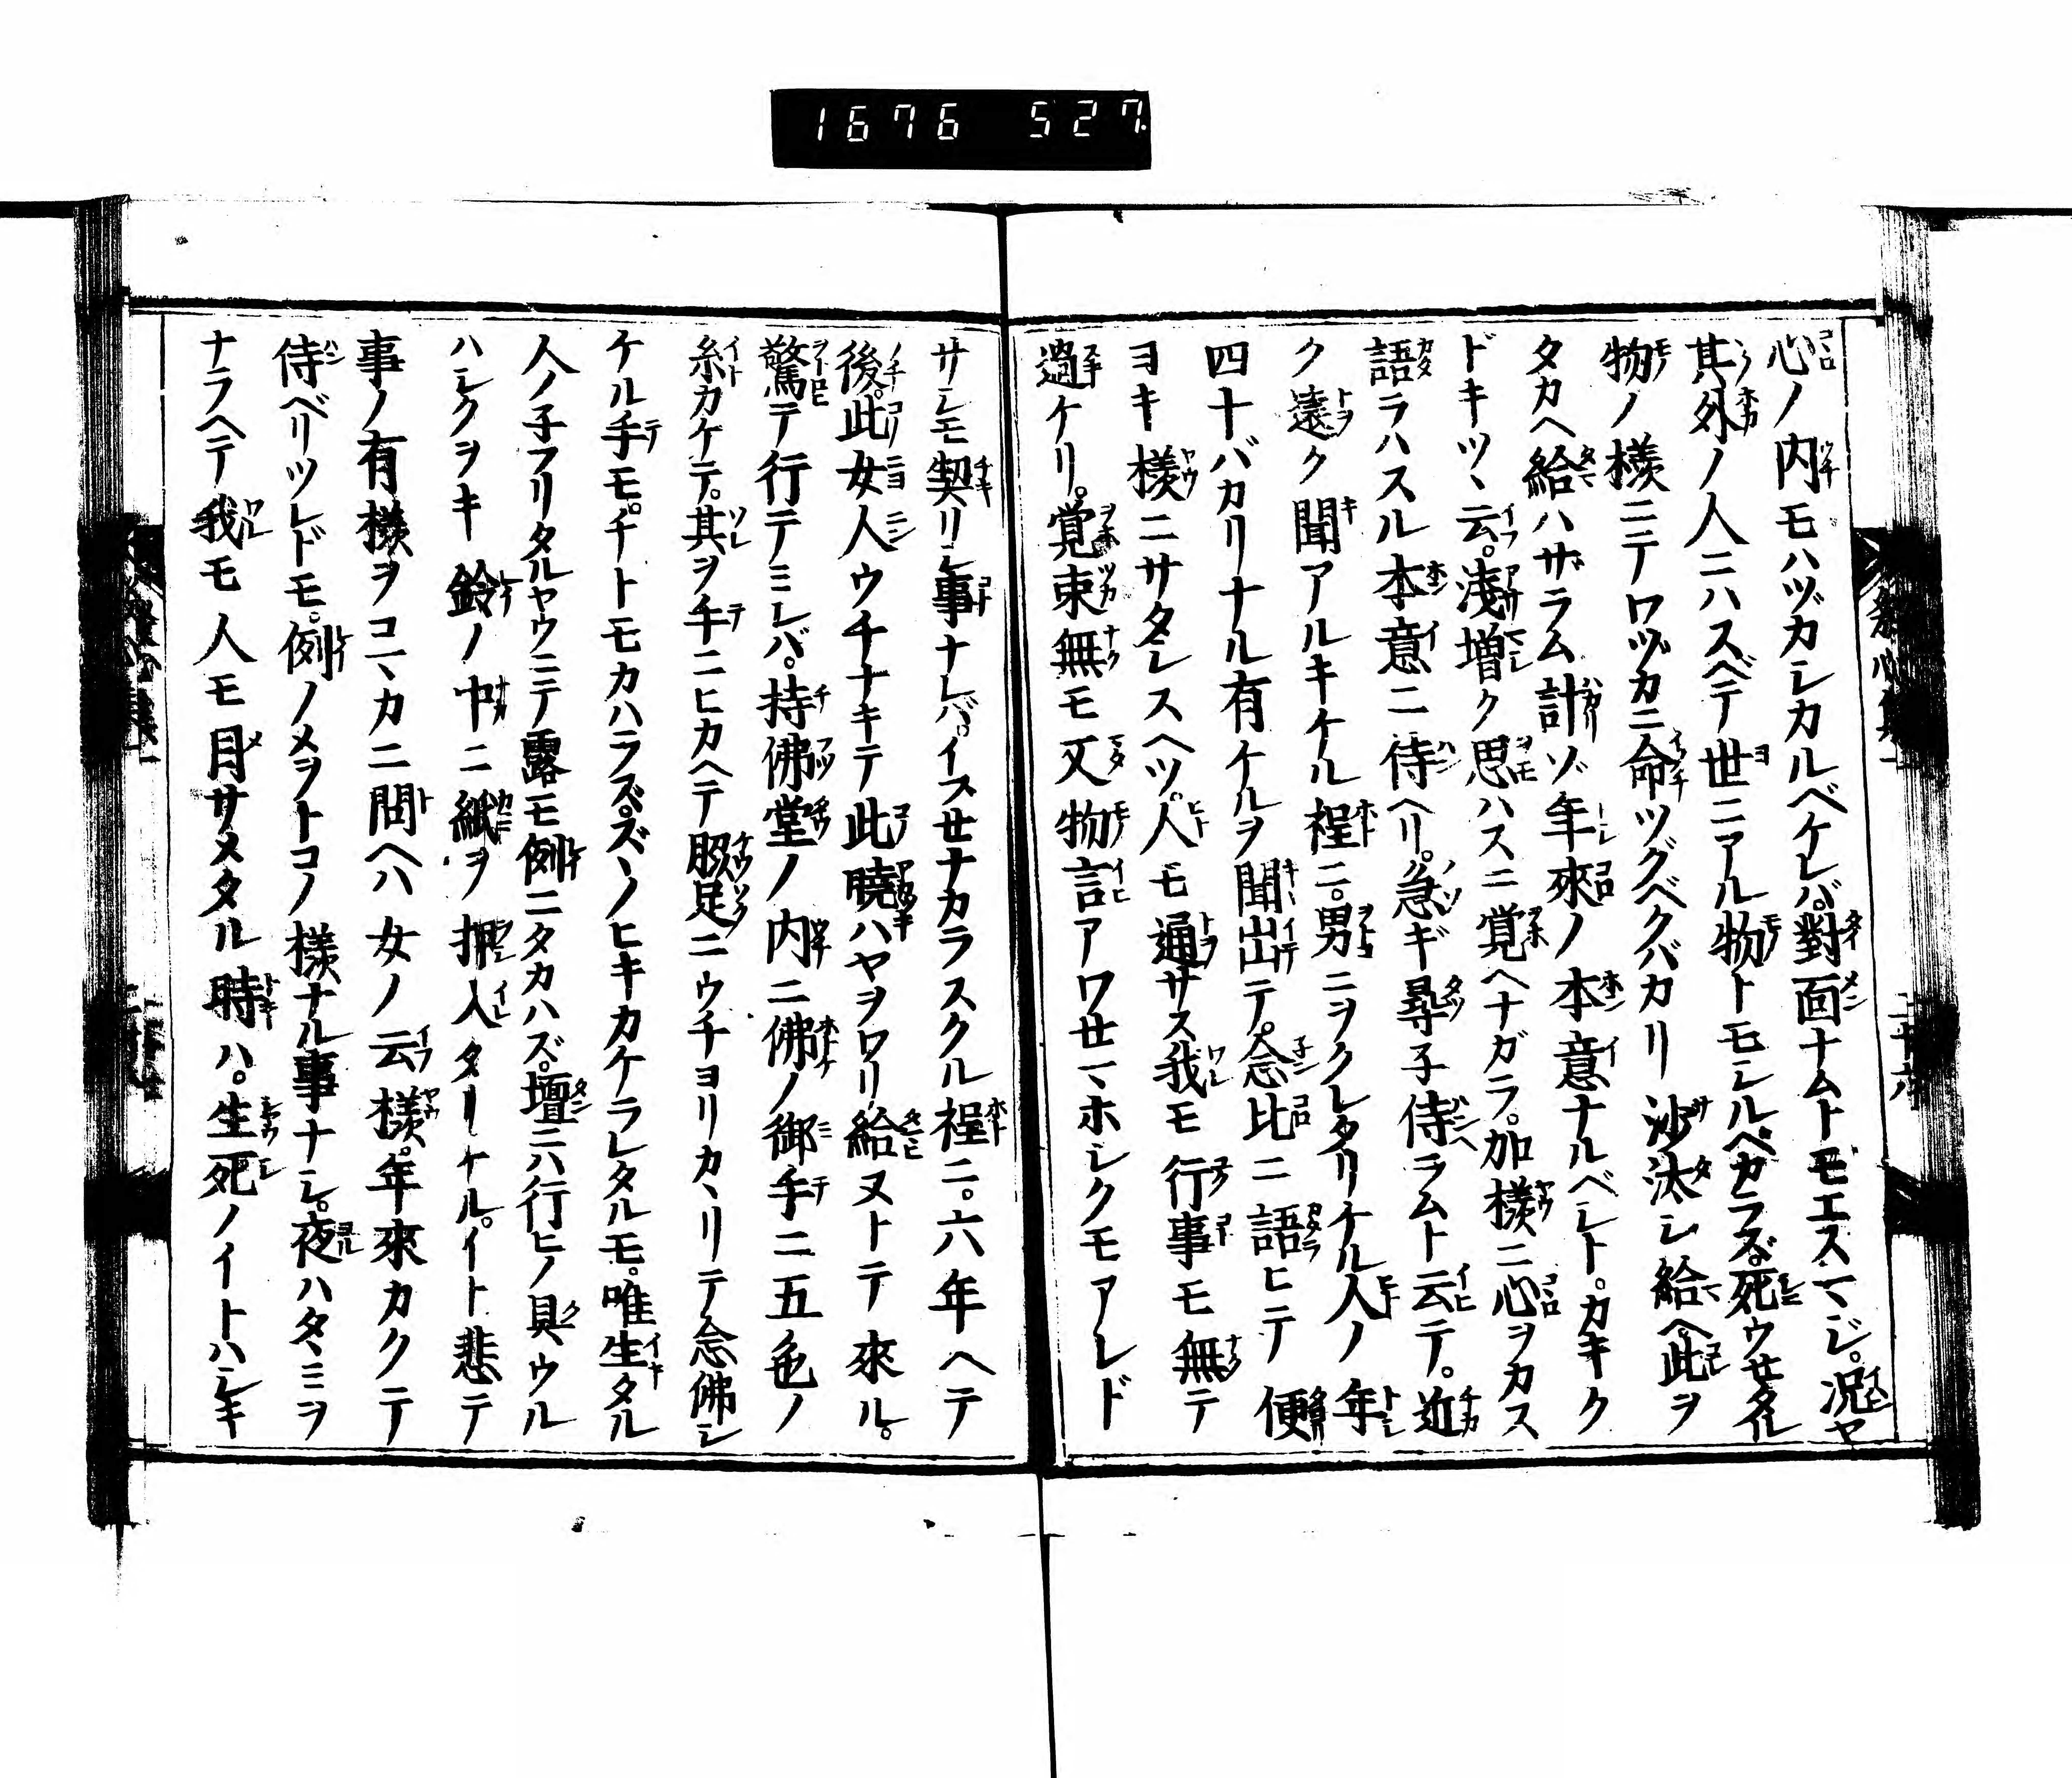 1676 527
心ノ内モハヅカシカルベケレバ。對面ナムトモエスマジ。况ヤ
其外ノ人ニハスベテ世ニアル物トモシルベカラズ。死ウセタル
物ノ様ニテワヅカニ命ツグベクバカリ沙汰シ給ヘ此ヲ
タカヘ給ハザラム計ゾ年來ノ本意ナルベレト。カキク
ドキツヽ云。淺増ク思ハスニ覚ヘナガラ。加様ニ心ヲカス
語ラハスル本意ニ侍ヘリ。急ギ尋子侍ラムト云テ。近
ク遠ク聞アルキケル程ニ。男ニヲクレタリケル人ノ年
四十バカリナル有ケルヲ聞出テ。念比ニ語ヒテ便
ヨキ様ニサタシスヘツ。人モ通サス我モ行事モ無テ
過ケリ。覚束無モ又物言アワセマホシクモアレド
サレモ契リシ事ナレバ。イフセナカラスクル程ニ。六年ヘテ
後。此女人ウチナキテ此暁ハヤヲワリ給ヌトテ來ル。
驚テ行テミレバ。持佛堂ノ内ニ佛ノ御手ニ五色ノ
糸カケテ。其ヲ手ニヒカヘテ脇足ニウチヨリカヽリテ念佛シ
ケル手モ。チトモカハラズ。ズヽノヒキカケラレタルモ。唯生タル
人ノ子フリタルヤウニテ露モ例ニタカハズ。壇ニハ行ヒノ具ウル
ハシクヲキ鈴ノ中ニ紙ヲ押入タリケル。イト悲テ
事ノ有様ヲコヽカニ問ヘハ女ノ云様。年來カクテ
侍ベリツレドモ。例ノメヲトコノ様ナル事ナシ。夜ハタヽミヲ
ナラヘテ我モ人モ目サメタル時ハ。生死ノイトハシキ